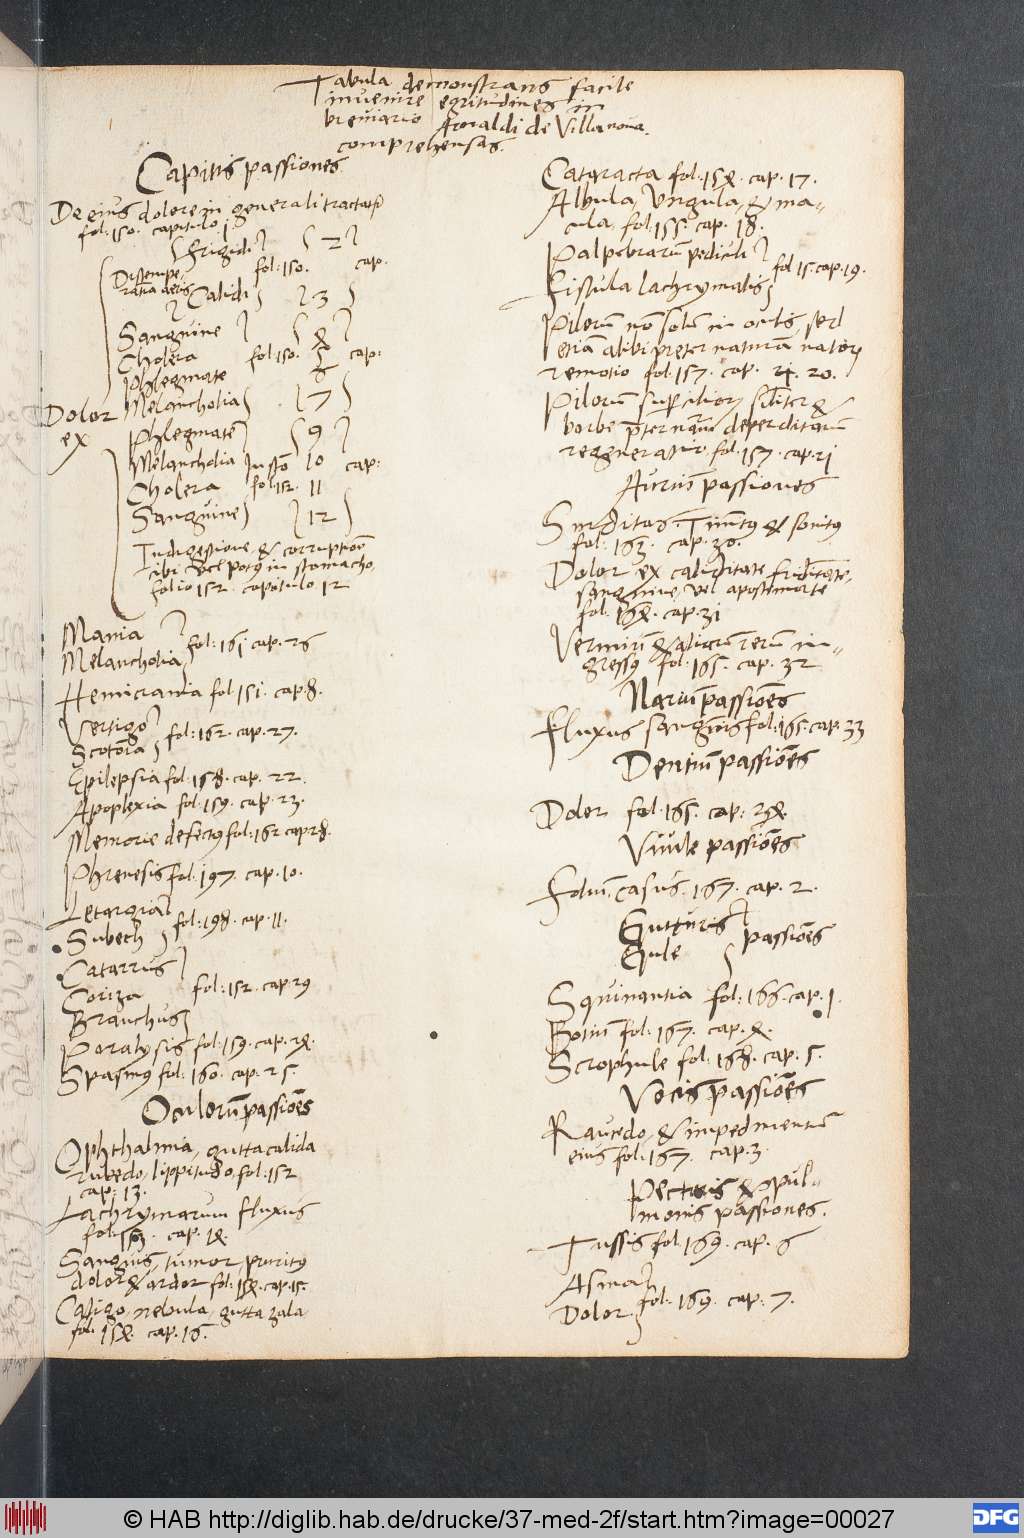 Tabula demonstrans facile
invenire egritudines in
breviario Arnaldi de Villanova
comprehensas.
Capitis passiones
De eius dolore in generali tractatur
fol. 150. capitulo 1
frigidi 2
Distempe-
rantia aeris fol: 150. cap.
Calidi 3
Sanguine 4
Cholera fol: 150. 5 cap:
Phlegmate 6
Dolor Melancholia 7
ex Phlegmate 9
Melancholia 10 cap:
Cholera fol: 152. 11
Sanguine 12
Indigestione & corruption
cibi vel potus in stomacho
folio 152. capitulo 12
Mania
Melancholia fol: 161 cap. 26
Hemicrania fol 151. cap. 8.
Vertigo
Scotoma fol: 162. cap. 27.
Epilepsia fol: 158. cap. 22.
Apoplexia fol: 159. cap. 23.
Memorie defectus fol: 162 cap 28.
Phrenesis fol: 197. cap. 10.
Letargia
Subech fol: 198. cap. 11.
Catarrus
Coriza fol: 152. cap. 29
Branchus
Paralysis fol: 159. cap. 24.
Spasmus fol: 160. cap. 25.
Oculorum passiones
Ophthalmia, gutta calida
rubedo, lippitudo, fol: 152
cap: 13.
Lachrymarum fluxus
fol: 153. cap. 14.
Sanguis, tumor, pruritus
dolor & ardor fol: 154. cap. 15.
Caligo, nebula, gutta zala
fol. 154. cap. 16.
Cataracta fol: 154. cap. 17.
Albula, Ungula, & ma-
cula, fol: 155. cap. 18.
Palpebrarum pediculi
Fistula lachrymalis fol 15. cap. 19.
Pilorum non solum in oculis, sed
etiam alibi preter naturam nator
remotio fol: 157. cap. 20.
Pilorum supercilior similiter &
barbe preter naturam deperditarum
regneratio. fol: 157. cap. 21
Aurium passiones
Surditas. Tinnitus & sonitus
fol: 163. cap. 30.
Dolor ex caliditate frigiditate,
sanguine, vel apostemate
fol: 164. cap. 31
Vermium & aliarum rerum in-
gressus fol: 165. cap. 32
Narium passiones
Fluxus sanguinis fol: 165. cap. 33
Dentium passiones
Dolor fol: 165. cap: 34.
Uvule passiones
casus. 167. cap. 2.
Gutturis
Gule passiones
Squinantia fol: 166. cap. 1.
Botium fol: 167. cap. 4.
Scrophule fol: 168. cap. 5.
Vocis passiones
Raucedo, & impedimentum
eius fol: 167. cap. 3.
Pectoris & pul-
monis passiones.
Tussis fol: 169. cap. 6
Asma
Dolor fol: 169. cap. 7.
© HAB http://diglib.hab.de/drucke/37-med-2f/start.htm?image=00027
DFG